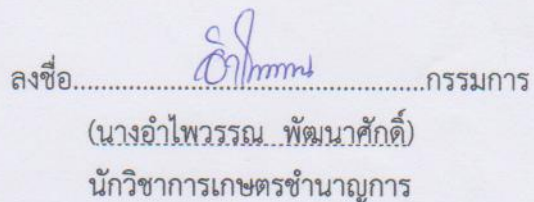 ลงชื่อ..........................................กรรมการ
(นางอำไพวรรณ พัฒนาศักดิ์)
นักวิชาการเกษตรชำนาญการ